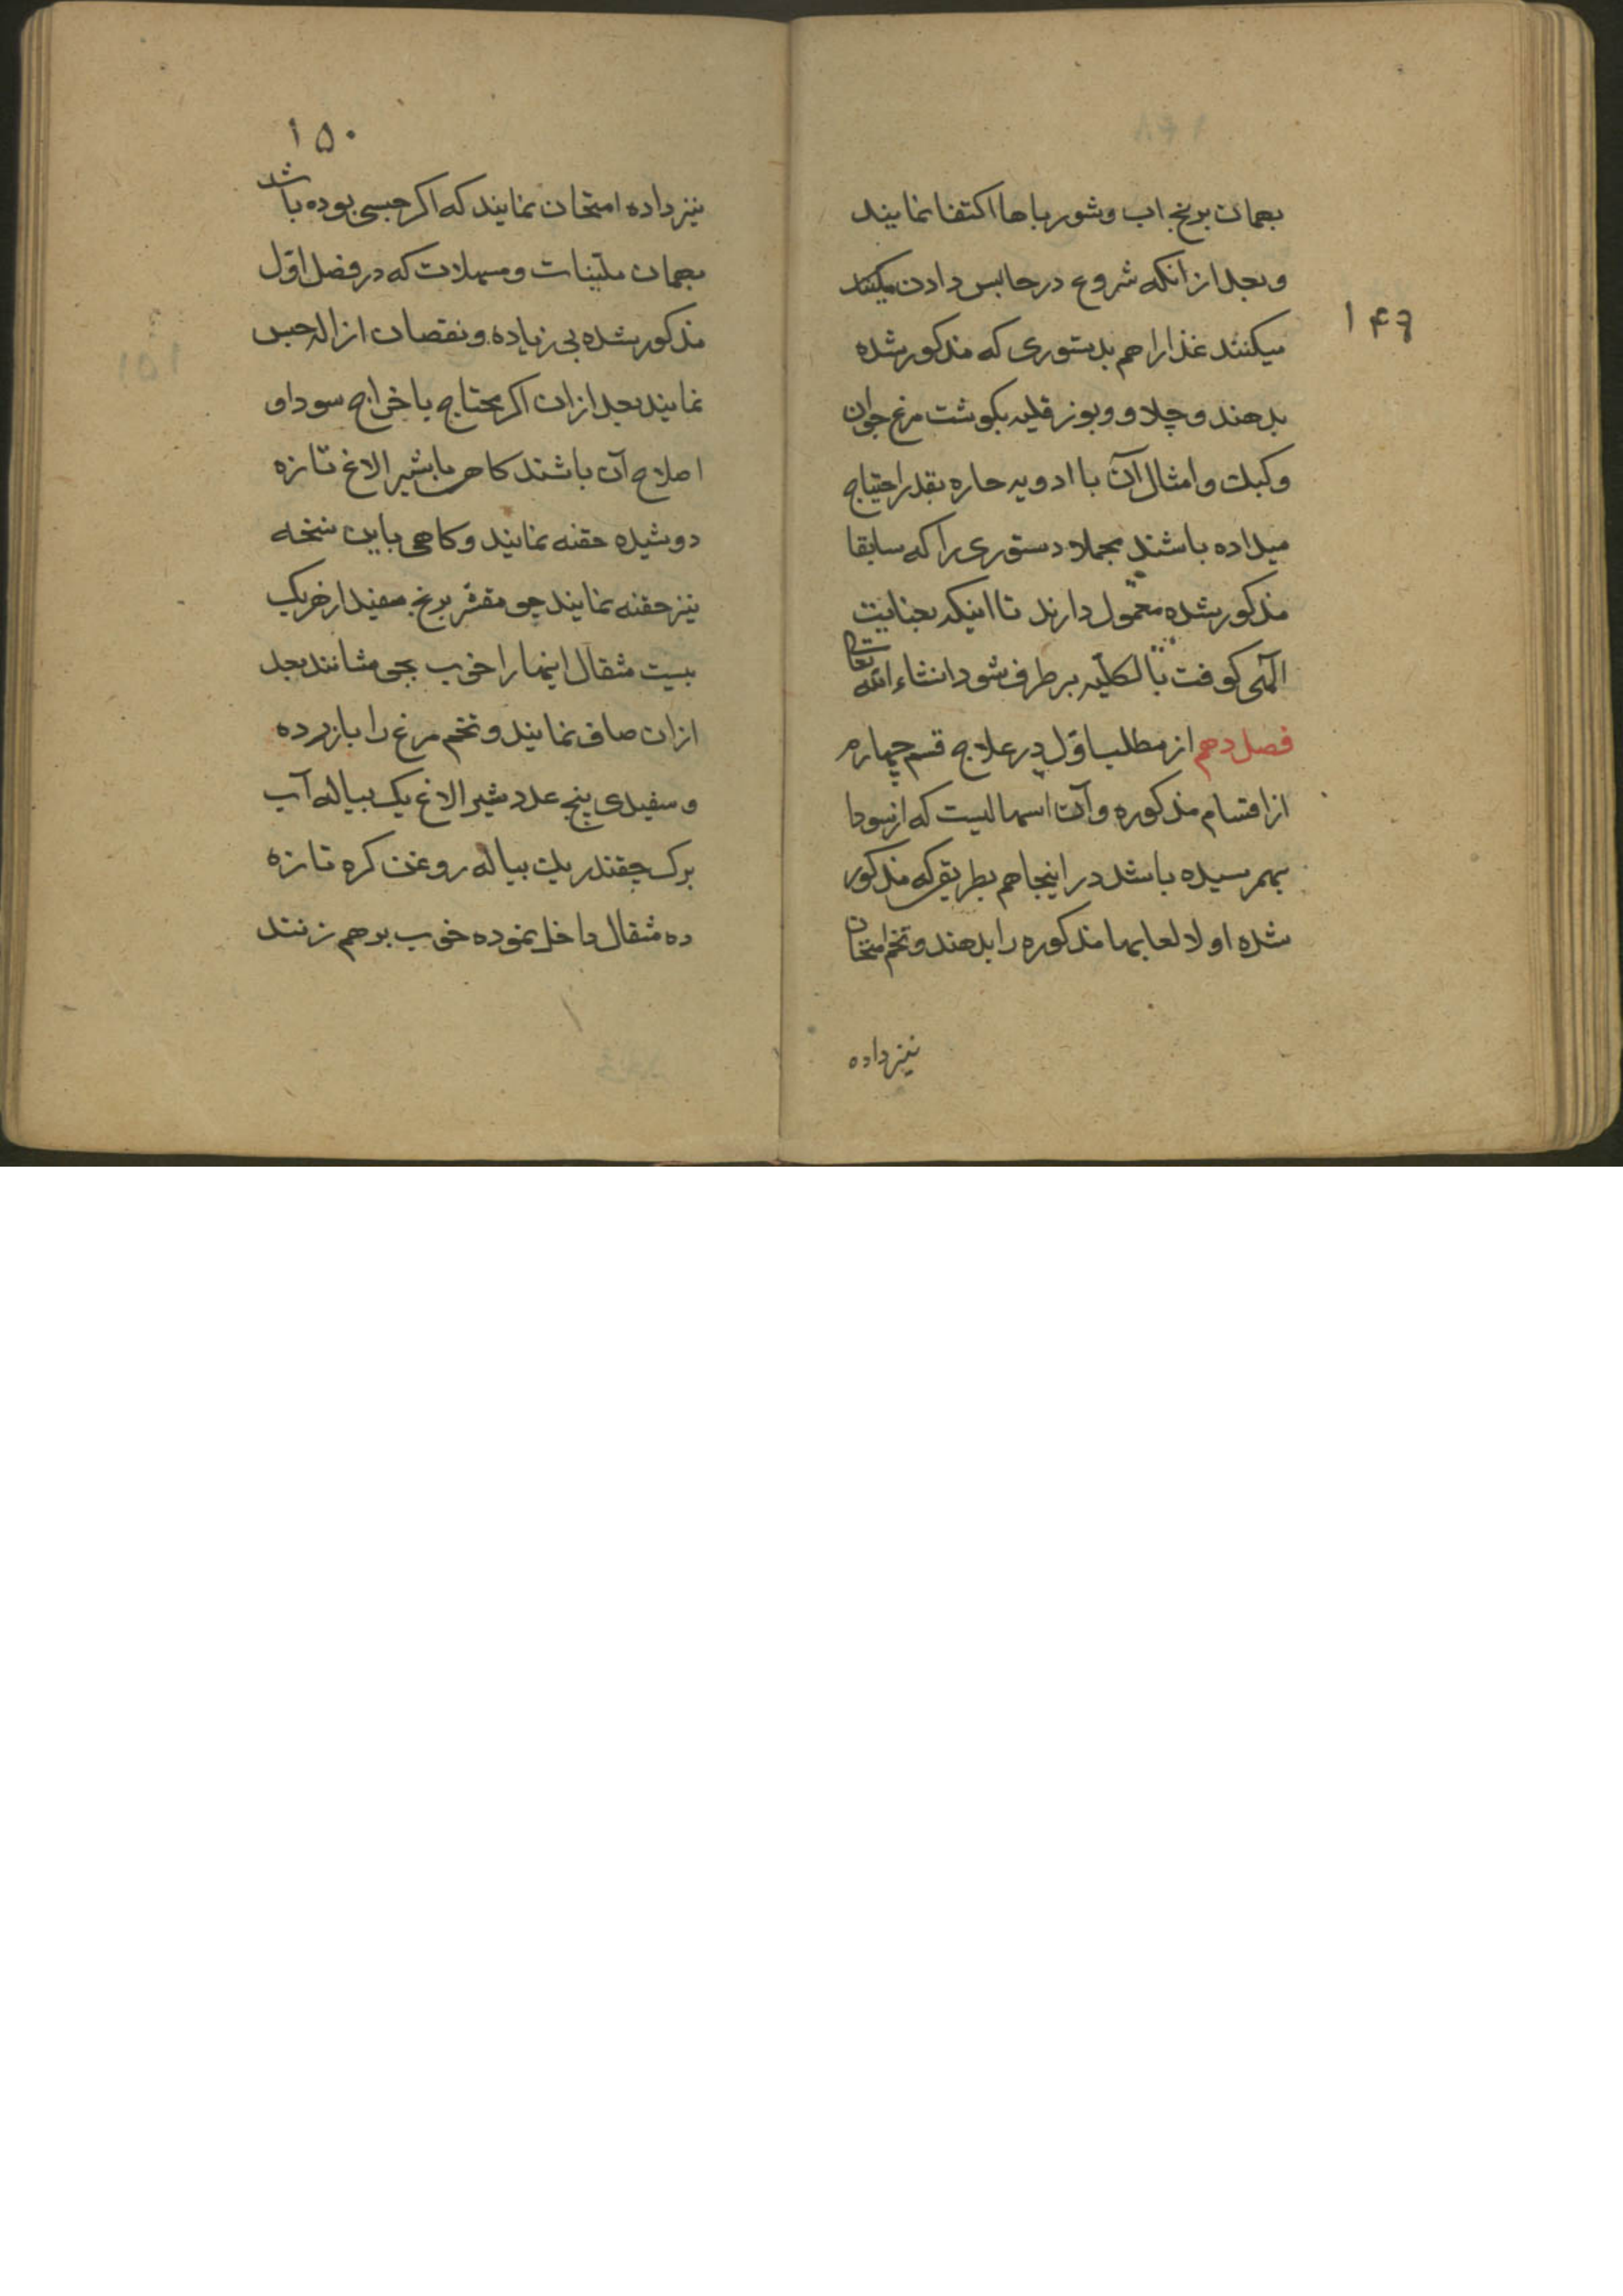 ۱۴۹
بهمان برنج اب و شور باها اکتفا نمایند
و بعد از انکه شروع در حابس دادن میکنند
میکنند غذا را هم بدستوری که مذکور شده
بدهند و چلاو و بوز قلیه بکوشت مرغ جوان
و کبک و امثال آن با ادویه حاره بقدر احتیاج
میداده باشند مجملا دستوری را که سابقا
مذکور شده معمول دارند تا اینکه بعنایت
الهی کوفت بالکلیه بر طرف شود انشاء الله تعالی
فصل دهم از مطلب اول در علاج قسم چهارم
از اقسام مذکوره و آن اسهالیست که از سودا
بهمرسیده باشد در اینجا هم بطریقی که مذکور
شده اولا لعابها مذکوره را بدهند و تخم امتحان
نیز داده
۱۵۰
نیز داده امتحان نمایند که اکر حبسی بوده باشد
بهمان ملینات و مسهلات که در فصل اول
مذکور شده بی زیاده و نقصان ازاله حبس
نمایند بعد از ان اکر محتاج باخراج سودا و
اصلاح آن باشند کاهی با شیر الاغ تازه
دوشیده حقنه نمایند و کاهی باین نسخه
نیز حقنه نمایند جو مقشر برنج سفید از هر یک
بیست مثقال اینها را خوب بجوشانند بعد
از ان صاف نمایند و تخم مرغ را با زرده
و سفیدی پنج عدد شیر الاغ یک پیاله آب
برک چقندر یک پیاله روغن کره تازه
ده مثقال داخل نموده خوب بر هم زنند